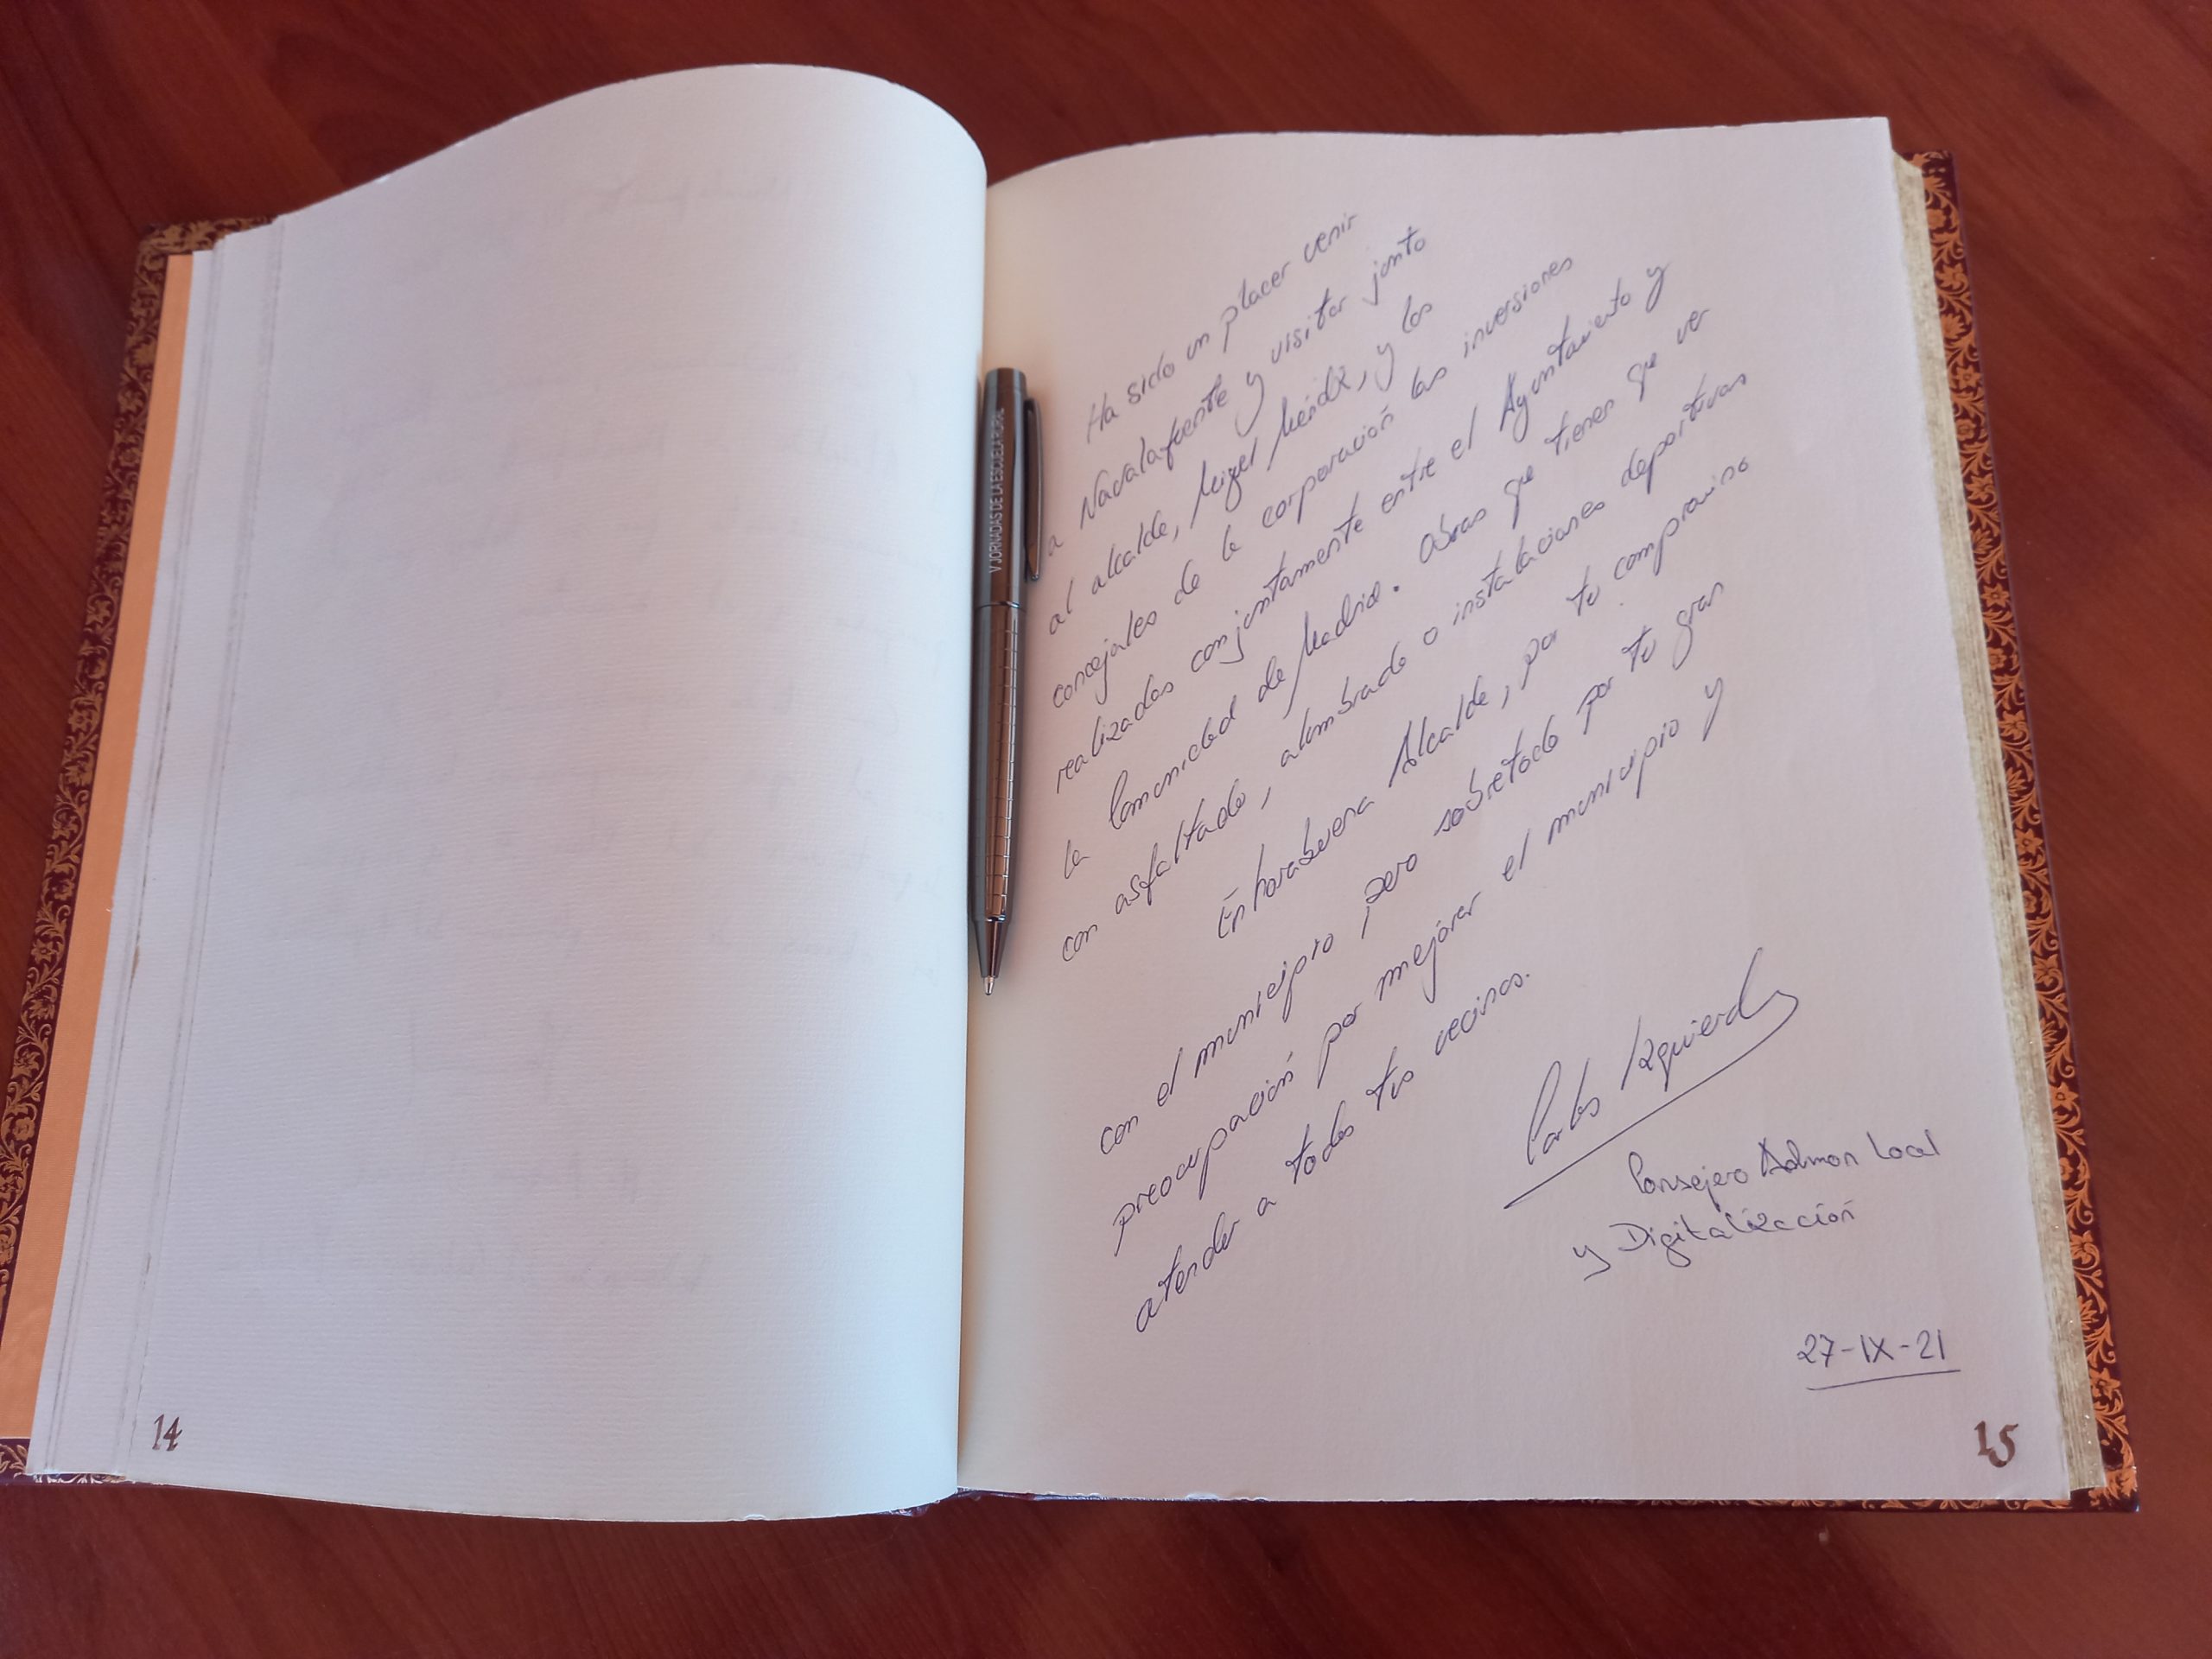 Ha sido un placer venir
a Navalafuente y visitar junto
al alcalde, Miguel Méndez, y los
concejales de la corporación las inversiones
realizadas conjuntamente entre el Ayuntamiento y
la Comunidad de Madrid. Obras que tienen que ver
con asfaltado, alumbrado o instalaciones deportivas
Enhorabuena Alcalde, por tu compromiso
con el municipio, pero sobretodo por tu gran
preocupación por mejorar el municipio y
atender a todos tus vecinos.
Carlos Izquierdo
Consejero Admon Local
y Digitalización
27-IX-21
V JORNADAS DE LA ESCUELA RURAL
14
15